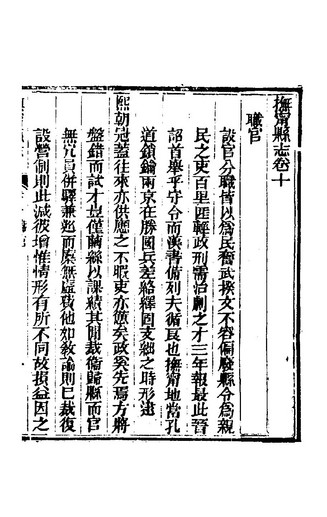 撫甯縣志卷十
職官
設官分職皆以爲民奮武揆文不容偏廢縣令爲親
民之吏百里匪輕政刑需治劇之才三年報最此晉
詔首舉乎守令而漢書備列夫循良也撫甯地當孔
道鎖鑰兩京在勝國兵差絡繹固支絀之時形逮
熙朝冠蓋往來亦供應之不暇吏亦煩矣政奚先焉方將
盤錯而試才豈僅繭絲以課績其間裁衞歸縣而官
無冗員併驛兼巡而廩無虛費他如敎諭則已裁復
設營制則此減彼增惟情形有所不同故損益因之